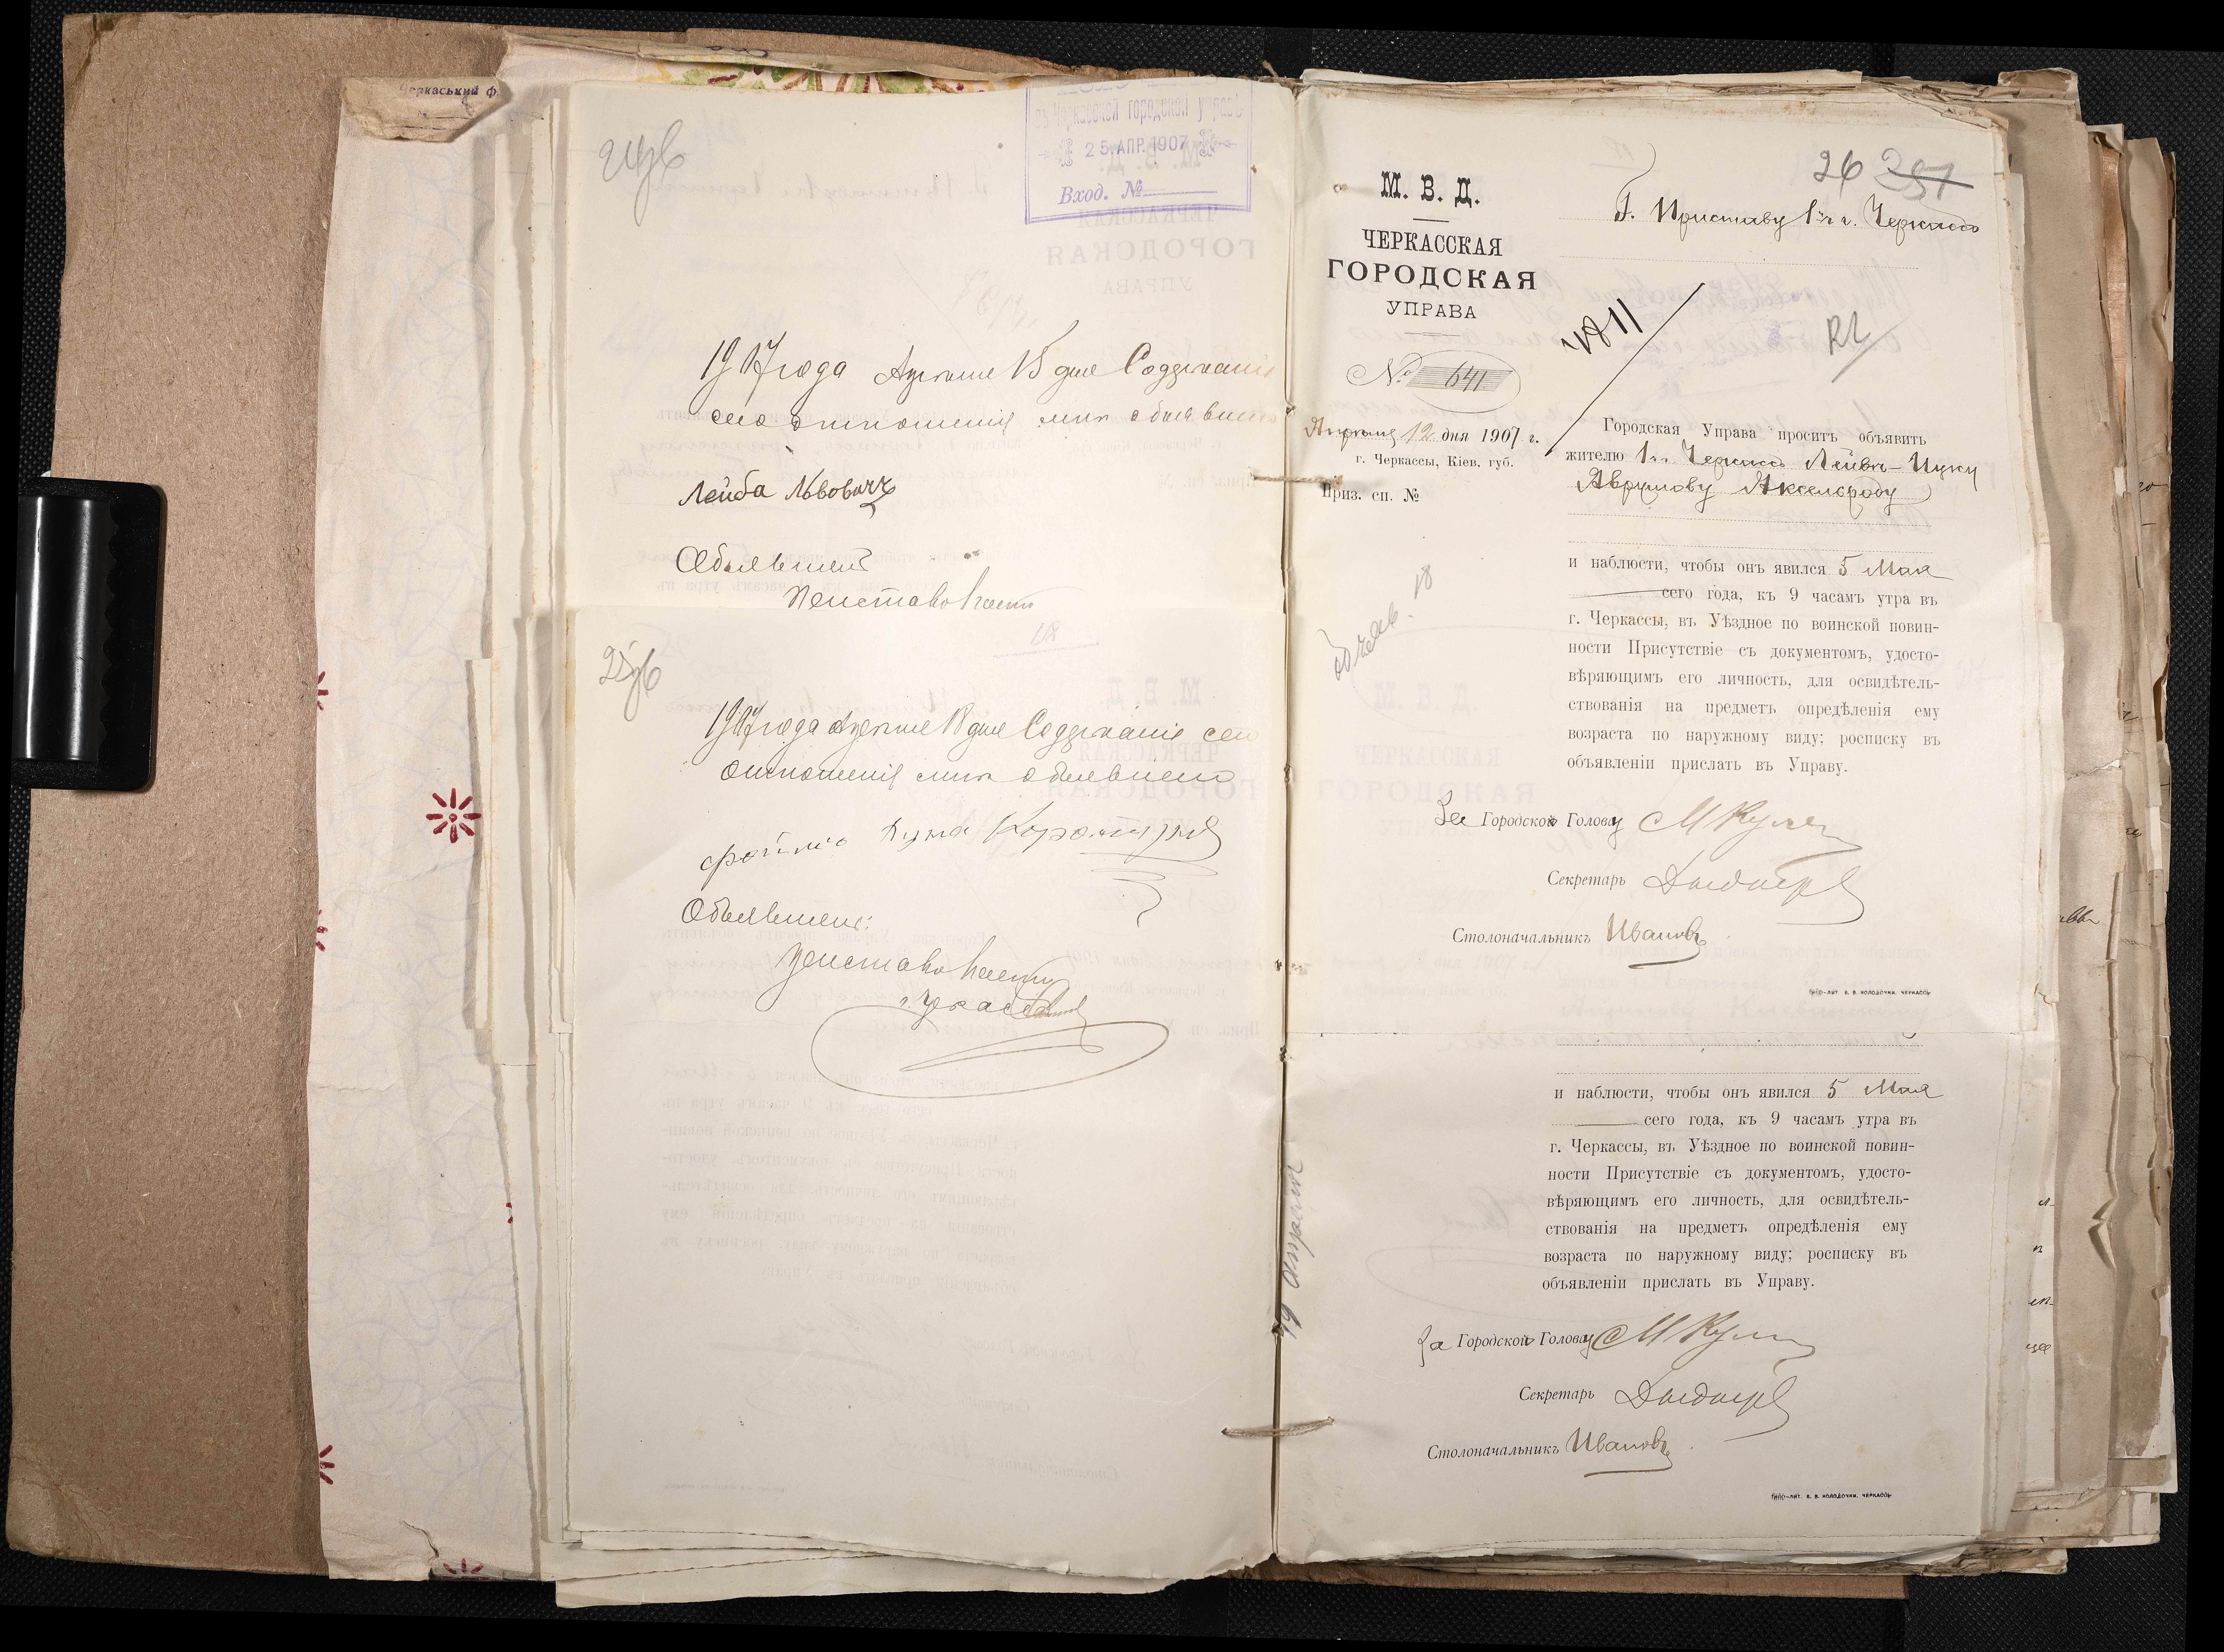 Черкаський ф
въ Черкасской городской управѣ
25. АПР. 1907
Вход. №
24об
1907 года Апреля 15 дня Содержаніе
сего отношенія мнѣ объявлено
Лейба Львович
Объявлен
25об
1907 года Апреля 18 дня Содержаніе сего
отношенія мнѣ объявлено
Объявлен:
г. Черкассы
26 257
М. В. Д.
ЧЕРКАССКАЯ
ГОРОДСКАЯ
УПРАВА
№ 641
Апреля 12 дня 1907 г.
г. Черкассы, Кіев. губ.
Приз. сп. №
Г. Приставу 1 ч. г. Черкассъ
Городская Управа проситъ объявить
жителю г. Черкассъ Лейбѣ-Ицку
Аврумову Аксельроду
и наблюсти, чтобы онъ явился 5 Мая
сего года, къ 9 часамъ утра въ
г. Черкассы, въ Уѣздное по воинской повин-
ности Присутствіе съ документомъ, удосто-
вѣряющимъ его личность, для освидѣтель-
ствованія на предметъ опредѣленія ему
возраста по наружному виду; росписку въ
объявленіи прислать въ Управу.
За Городского Голову
Секретарь
Столоначальникъ Ивановъ
ТИПО-ЛИТ. В. В. КОЛОДОЧКИ. ЧЕРКАССЫ
и наблюсти, чтобы онъ явился 5 Мая
сего года, къ 9 часамъ утра въ
г. Черкассы, въ Уѣздное по воинской повин-
ности Присутствіе съ документомъ, удосто-
вѣряющимъ его личность, для освидѣтель-
ствованія на предметъ опредѣленія ему
возраста по наружному виду; росписку въ
объявленіи прислать въ Управу.
За Городского Голову
Секретарь
Столоначальникъ Ивановъ
ТИПО-ЛИТ. В. В. КОЛОДОЧКИ. ЧЕРКАССЫ
19 апреля